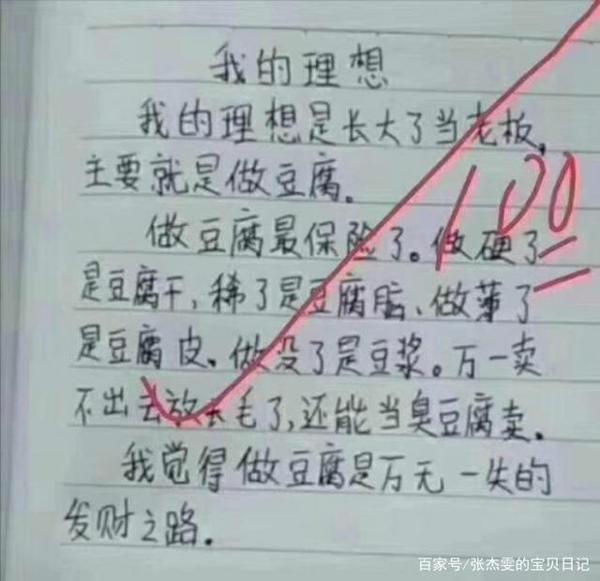 我的理想
我的理想是长大了当老板,
主要就是做豆腐。
做豆腐最保险了。做硬了
是豆腐干、稀了是豆腐脑、做薄了
是豆腐皮。做没了是豆浆。万一卖
不出去放长毛了,还能当臭豆腐卖。
我觉得做豆腐是万无一失的
发财之路。
100
百家号/张杰雯的宝贝日记